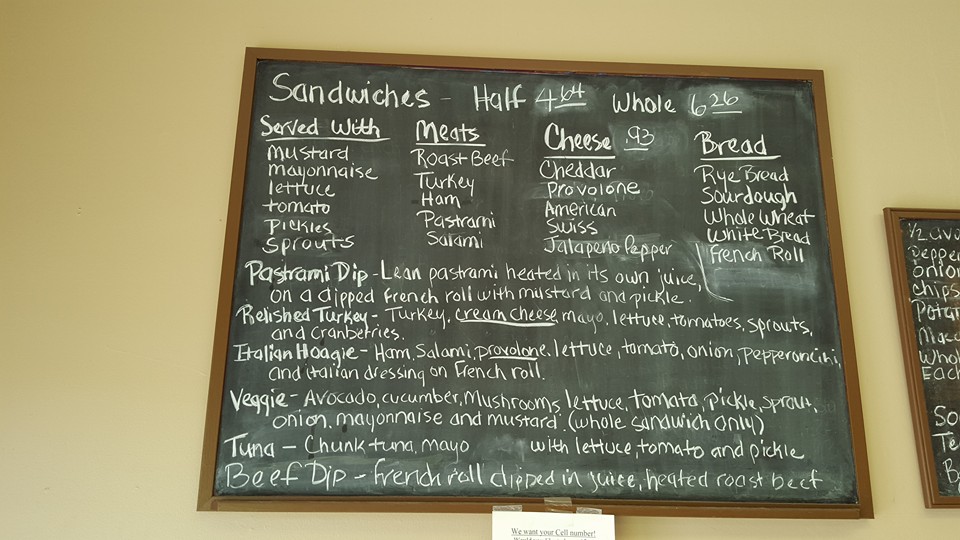 Sandwiches - Half 4.64 Whole 6.26
Served With Meats Cheese .93 Bread
mustard Roast Beef Cheddar Rye Bread
mayonnaise Turkey Provolone Sourdough
lettuce Ham American Whole Wheat
tomato Pastrami Swiss White Bread
Pickles Salami Jalapeno Pepper French Roll
Sprouts
Pastrami Dip - Lean pastrami heated in its own juice,
on a dipped french roll with mustard and pickle.
Relished Turkey - Turkey, cream cheese mayo, lettuce, tomatoes, sprouts,
and cranberries.
Italian Hoagie - Ham, Salami, provolone, lettuce, tomato, onion, pepperoncini,
and italian dressing on French roll.
Veggie - Avocado, cucumber, Mushrooms, lettuce, tomato, pickle, sprout,
onion, mayonnaise and mustard. (whole sandwich only)
Tuna - Chunk tuna, mayo with lettuce, tomato and pickle
Beef Dip - french roll dipped in juice, heated roast beef
We want your Cell number!
1/2 avo
pepper
onion
chips
Pota
Maca
Whol
Each
So
Te
B